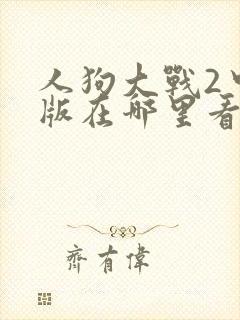 人狗大戰2
版在哪里看
齊有偉